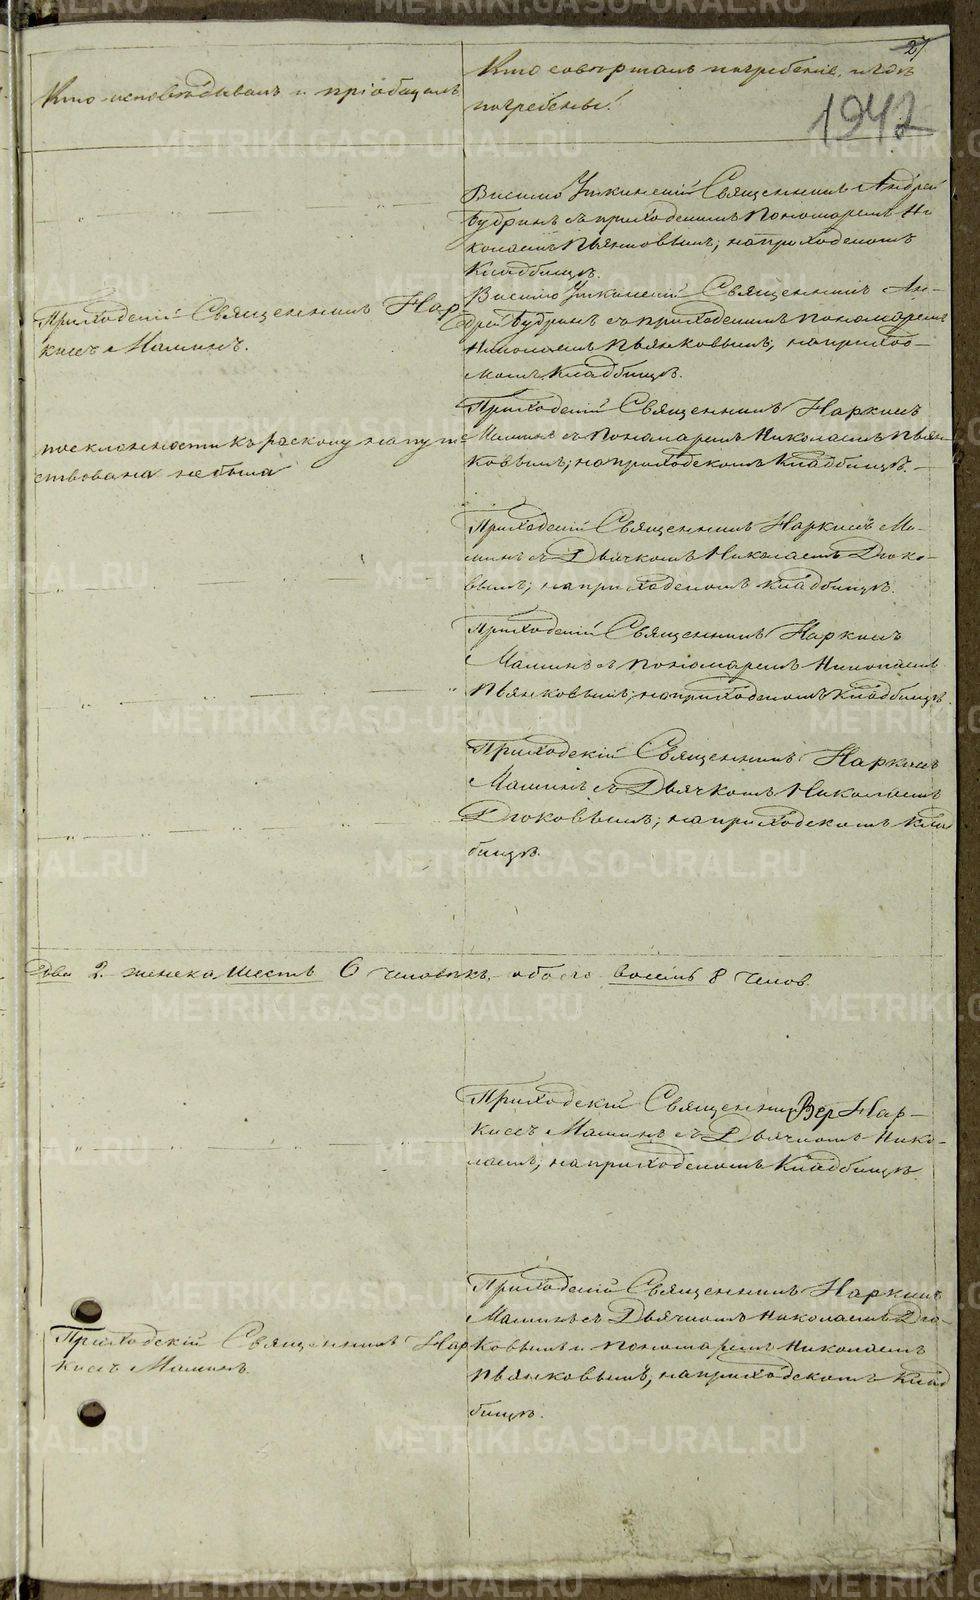 27
1942
Кто исповѣдывалъ и пріобщалъ
Кто совершалъ погребеніе, и гдѣ
погребены.
Висимо Уткинскій Священникъ Андрей
Бубринъ съ приходскимъ Пономаремъ Ни
колаемъ Пьянковымъ; на приходскомъ
Кладбищѣ.
Приходскій Священникъ Нар
киссъ Маминъ.
Висимо Уткинскій Священникъ Ан-
дрей Бубринъ съ приходскимъ пономаремъ
Николаемъ Пьянковымъ; на приход-
комъ Кладбищѣ.
по склонности къ расколу напут
ствована не была
Приходскій Священникъ Наркисъ
Маминъ съ Пономаремъ Николаемъ Пьян-
ковымъ; на приходскомъ Кладбищѣ.
Приходскій Священникъ Наркисъ Ма-
минъ съ Дьячкомъ Николаемъ Дюко-
вымъ; на приходскомъ кладбищѣ.
Приходскій Священникъ Наркисъ
Маминъ съ пономаремъ Николаемъ
Пьянковымъ; на приходскомъ Кладбищѣ.
Приходскій Священникъ Наркисъ
Маминъ съ Дьячкомъ Николаемъ
Дюковымъ; на приходскомъ клад
бищѣ.
Два 2. женска шесть 6 человѣкъ, обоего восемь 8 челов.
Приходскій Священник Нар-
киссъ Маминъ съ Дьячкомъ Нико-
лаемъ; на приходскомъ Кладбищѣ.
Приходскій Священникъ Нар
киссъ Маминъ.
Приходскій Священникъ Наркисъ
Маминъ съ Дьячкомъ Николаемъ Дю-
ковымъ и пономаремъ Николаемъ
Пьянковымъ; на приходскомъ Клад
бищѣ.
METRIKI.GASO-URAL.RU